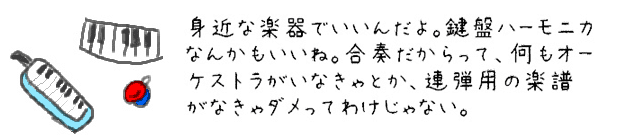 身近な楽器でいいんだよ。鍵盤ハーモニカ
なんかもいいね。合奏だからって、何もオー
ケストラがいなきゃとか、連弾用の楽譜
がなきゃダメってわけじゃない。